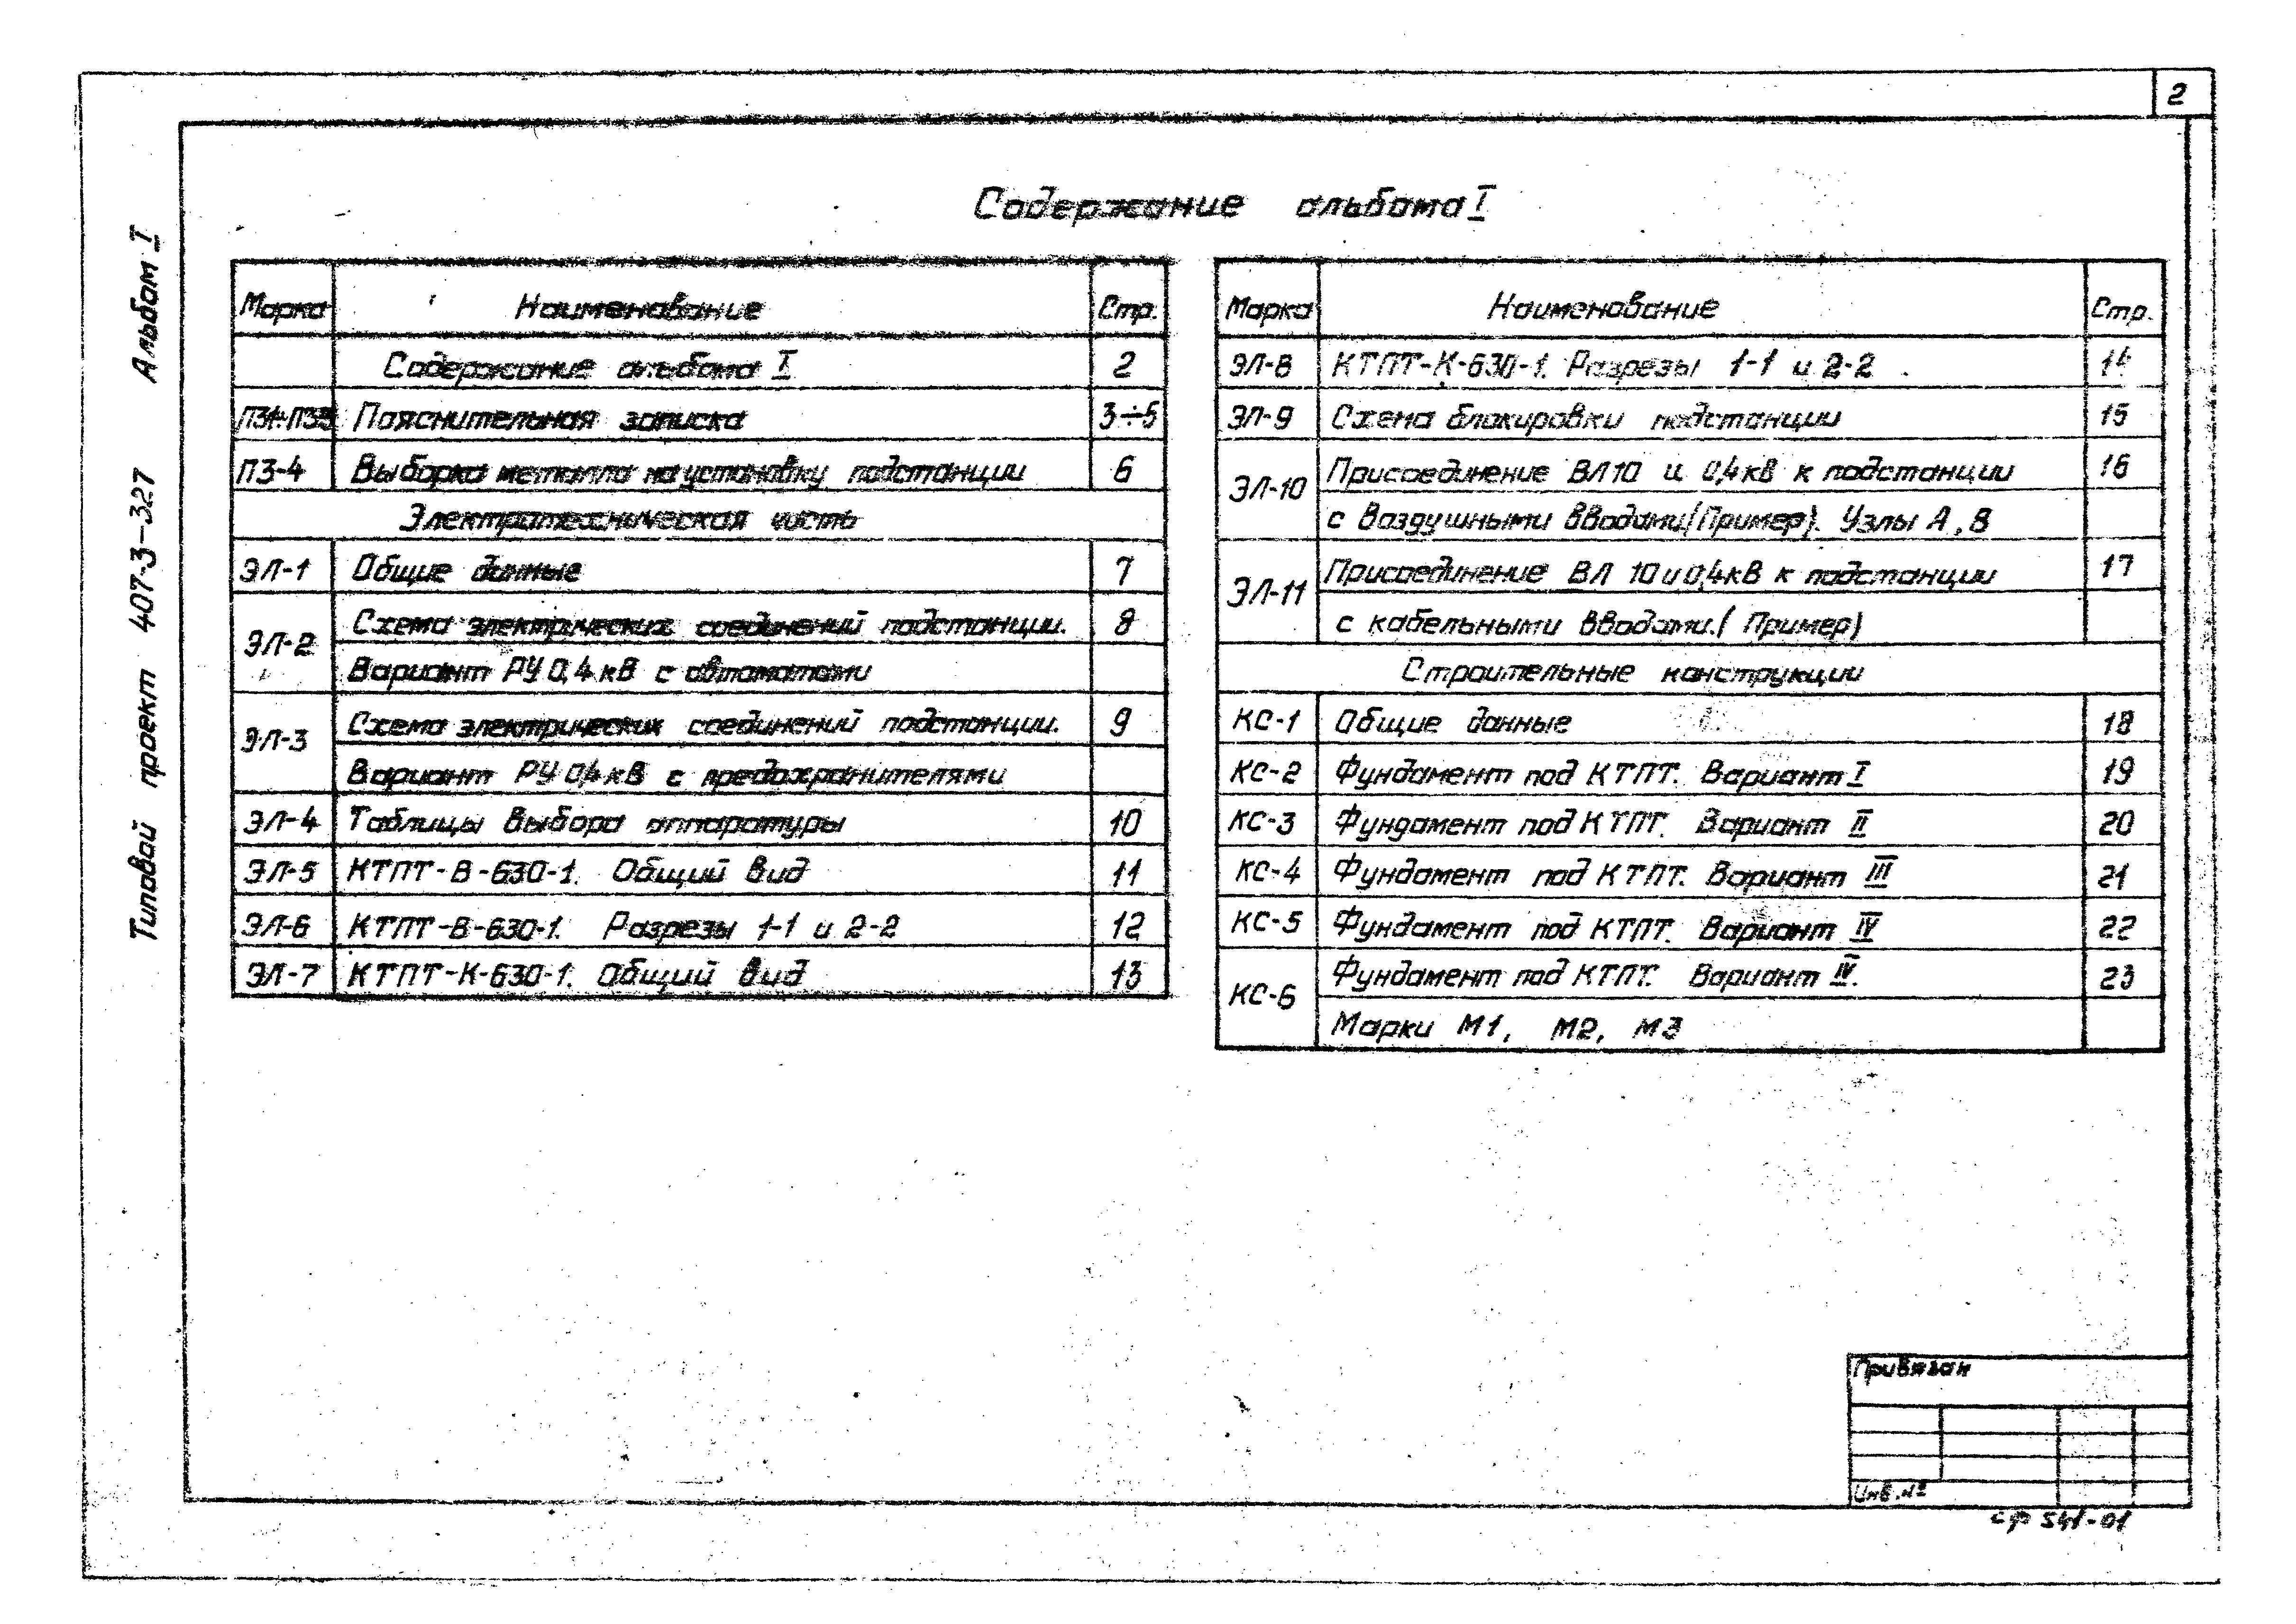 2
Содержание альбома I
Типовой проект 407-3-327 Альбом I
Марка Наименование Стр.
Содержание альбома I 2
ПЗ1÷ПЗ3 Пояснительная записка 3÷5
ПЗ-4 Выборка металла на установку подстанции 6
Электротехническая часть
ЭЛ-1 Общие данные 7
ЭЛ-2 Схема электрических соединений подстанции. 8
Вариант РУ 0,4 кВ с автоматами
ЭЛ-3 Схема электрических соединений подстанции. 9
Вариант РУ 0,4 кВ с предохранителями
ЭЛ-4 Таблицы выбора аппаратуры 10
ЭЛ-5 КТПТ-В-630-1. Общий вид 11
ЭЛ-6 КТПТ-В-630-1. Разрезы 1-1 и 2-2 12
ЭЛ-7 КТПТ-К-630-1. Общий вид 13
Марка Наименование Стр.
ЭЛ-8 КТПТ-К-630-1. Разрезы 1-1 и 2-2 14
ЭЛ-9 Схема блокировки подстанции 15
ЭЛ-10 Присоединение ВЛ 10 и 0,4 кВ к подстанции 16
с воздушными вводами (Пример). Узлы А, В
ЭЛ-11 Присоединение ВЛ 10 и 0,4 кВ к подстанции 17
с кабельными вводами. (Пример)
Строительные конструкции
КС-1 Общие данные 18
КС-2 Фундамент под КТПТ. Вариант I 19
КС-3 Фундамент под КТПТ. Вариант II 20
КС-4 Фундамент под КТПТ. Вариант III 21
КС-5 Фундамент под КТПТ. Вариант IV 22
КС-6 Фундамент под КТПТ. Вариант IV. 23
Марки М1, М2, М3
Привязан
Инв. №
сф 541-01